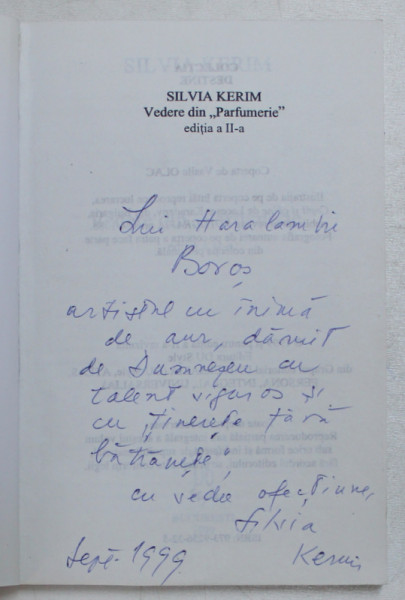 SILVIA KERIM
Vedere din „Parfumerie”
ediția a II-a
Lui Haralambie
Boroș
artistul cu inimă
de aur, dăruit
de Dumnezeu cu
talent viguros și
cu „tinerețe fără
bătrânețe”
cu vechea afecțiune,
Silvia
Sept. 1999 Kerim